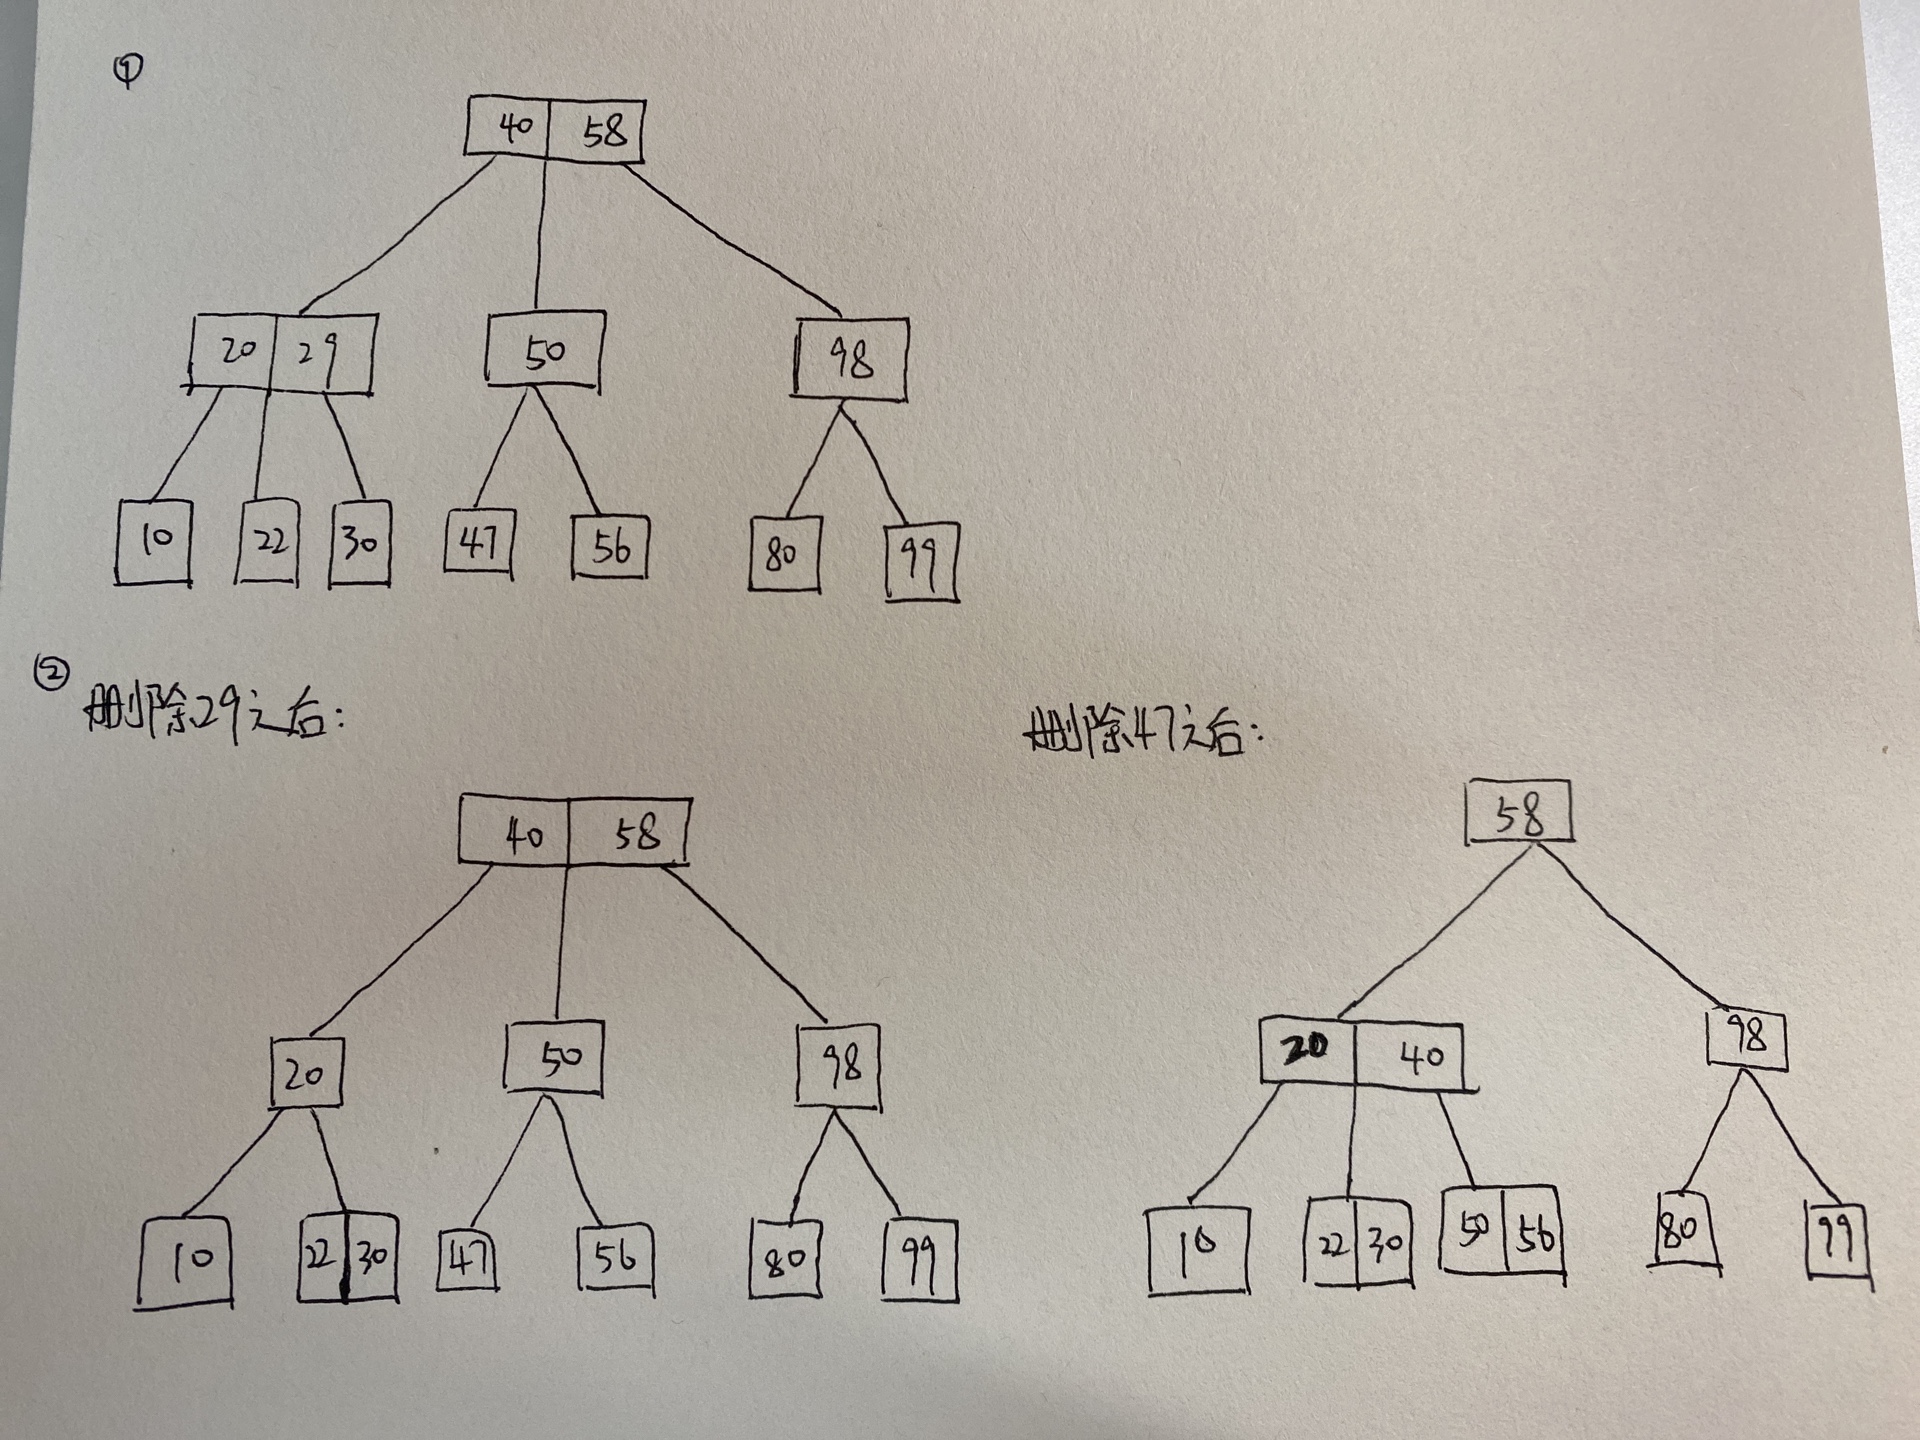 ①
40 58
20 29 50 98
10 22 30 47 56 80 99
② 删除29之后:
40 58
20 50 98
10 22 30 47 56 80 99
删除47之后:
58
20 40 98
10 22 30 50 56 80 99